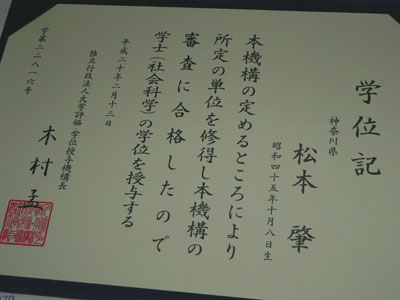 学位記
神奈川県
松本肇
昭和四十五年十月八日生
本機構の定めるところにより
所定の単位を修得し本機構の
審査に合格したので
学士(社会科学)の学位を授与する
平成二十年二月十三日
独立行政法人大学評価・学位授与機構長
木村孟
学第二二八一六号